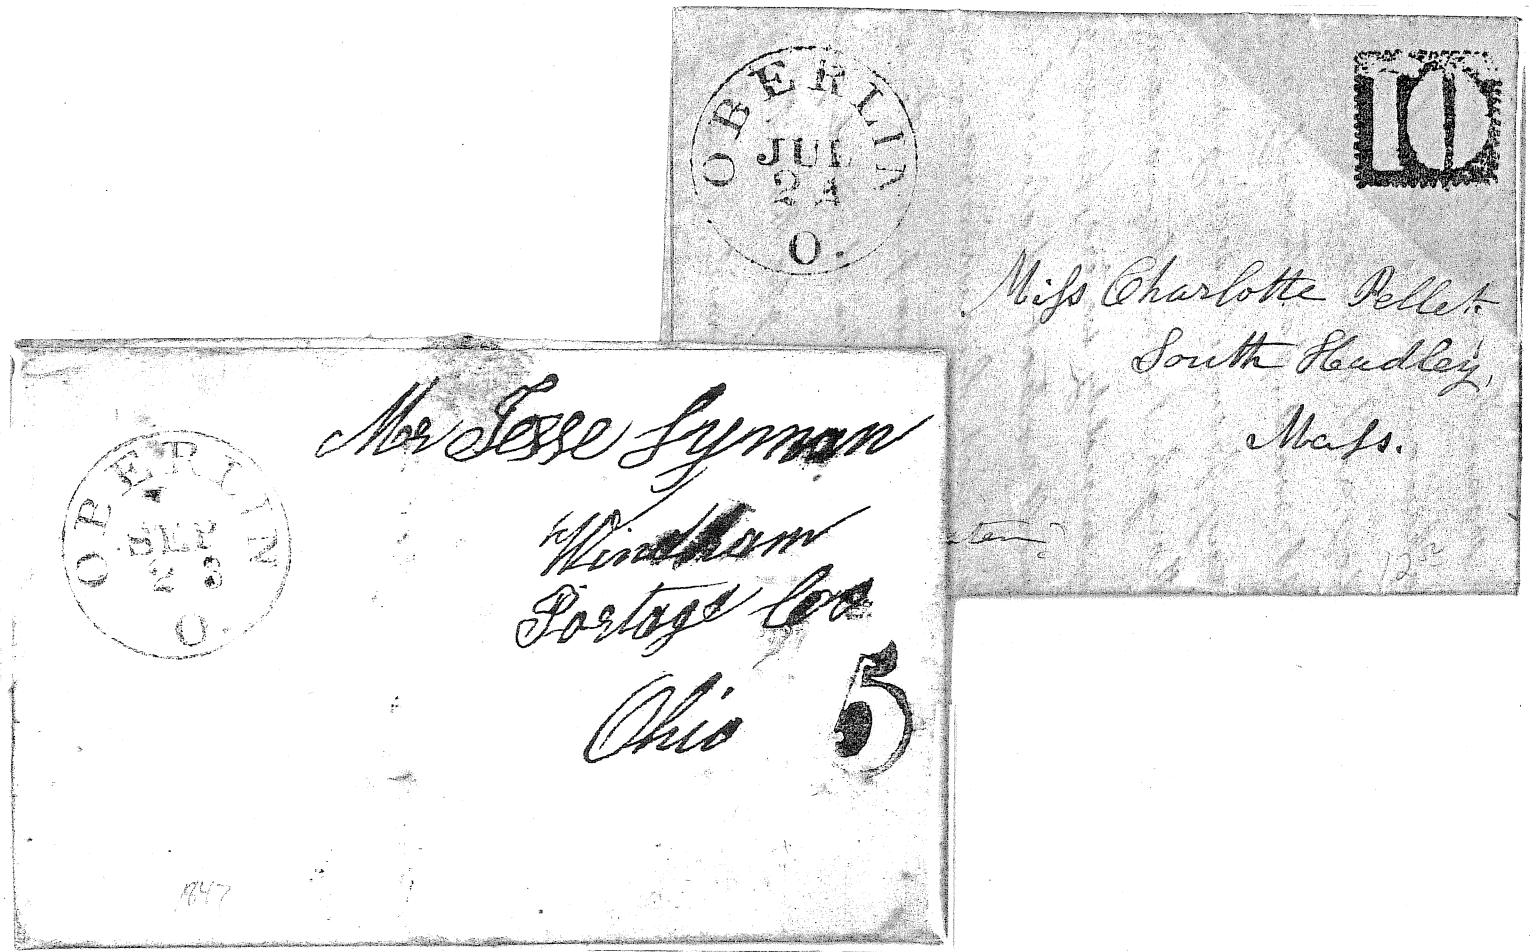 OBERLIN
JUL
24
O.
10
Miſs Charlotte Pellet
South Hadley,
Maſs.
12
OBERLIN
SEP
23
O.
Mr Jesse Lyman
Windham
Portage Co
Ohio
5
1847